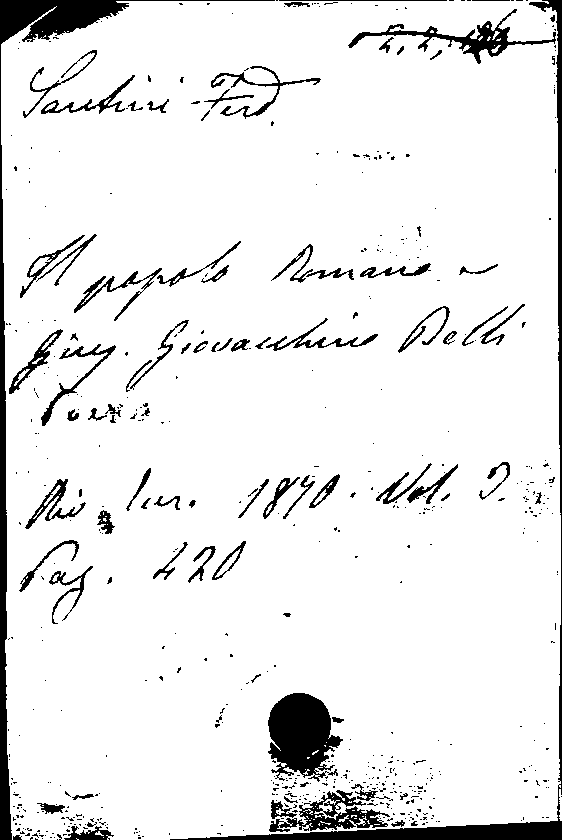 Santini Ferd.
Il popolo Romano e
Gius. Giovacchino Belli
Riv. Eur. 1870. Vol. 3.
Pag. 420